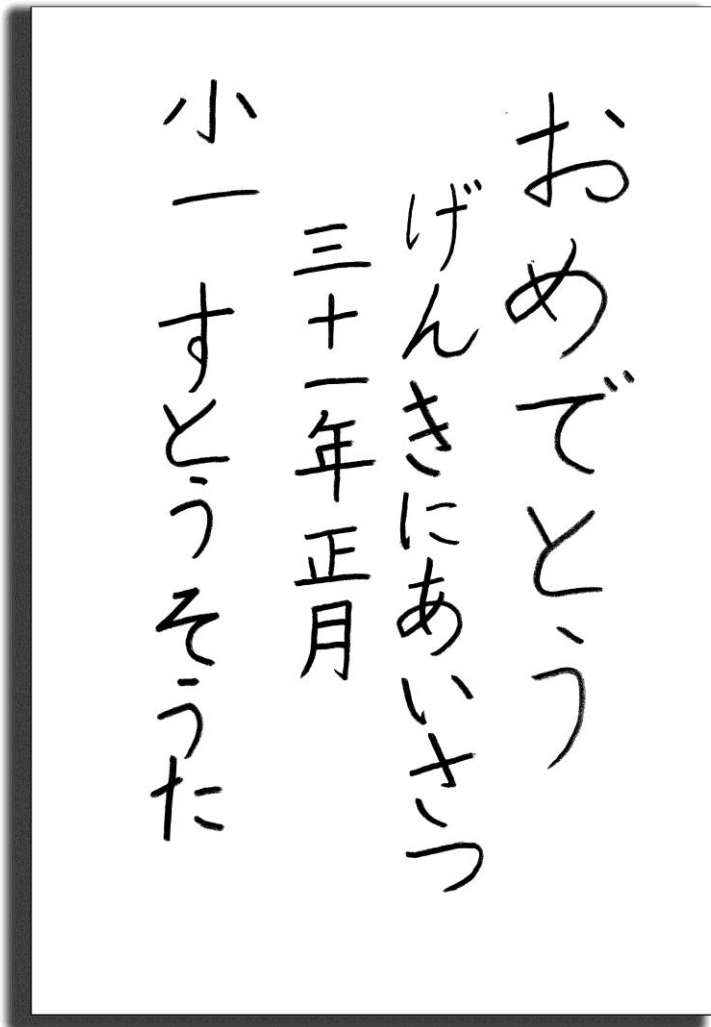 おめでとう
げんきにあいさつ
三十一年正月
小一 すとうそうた